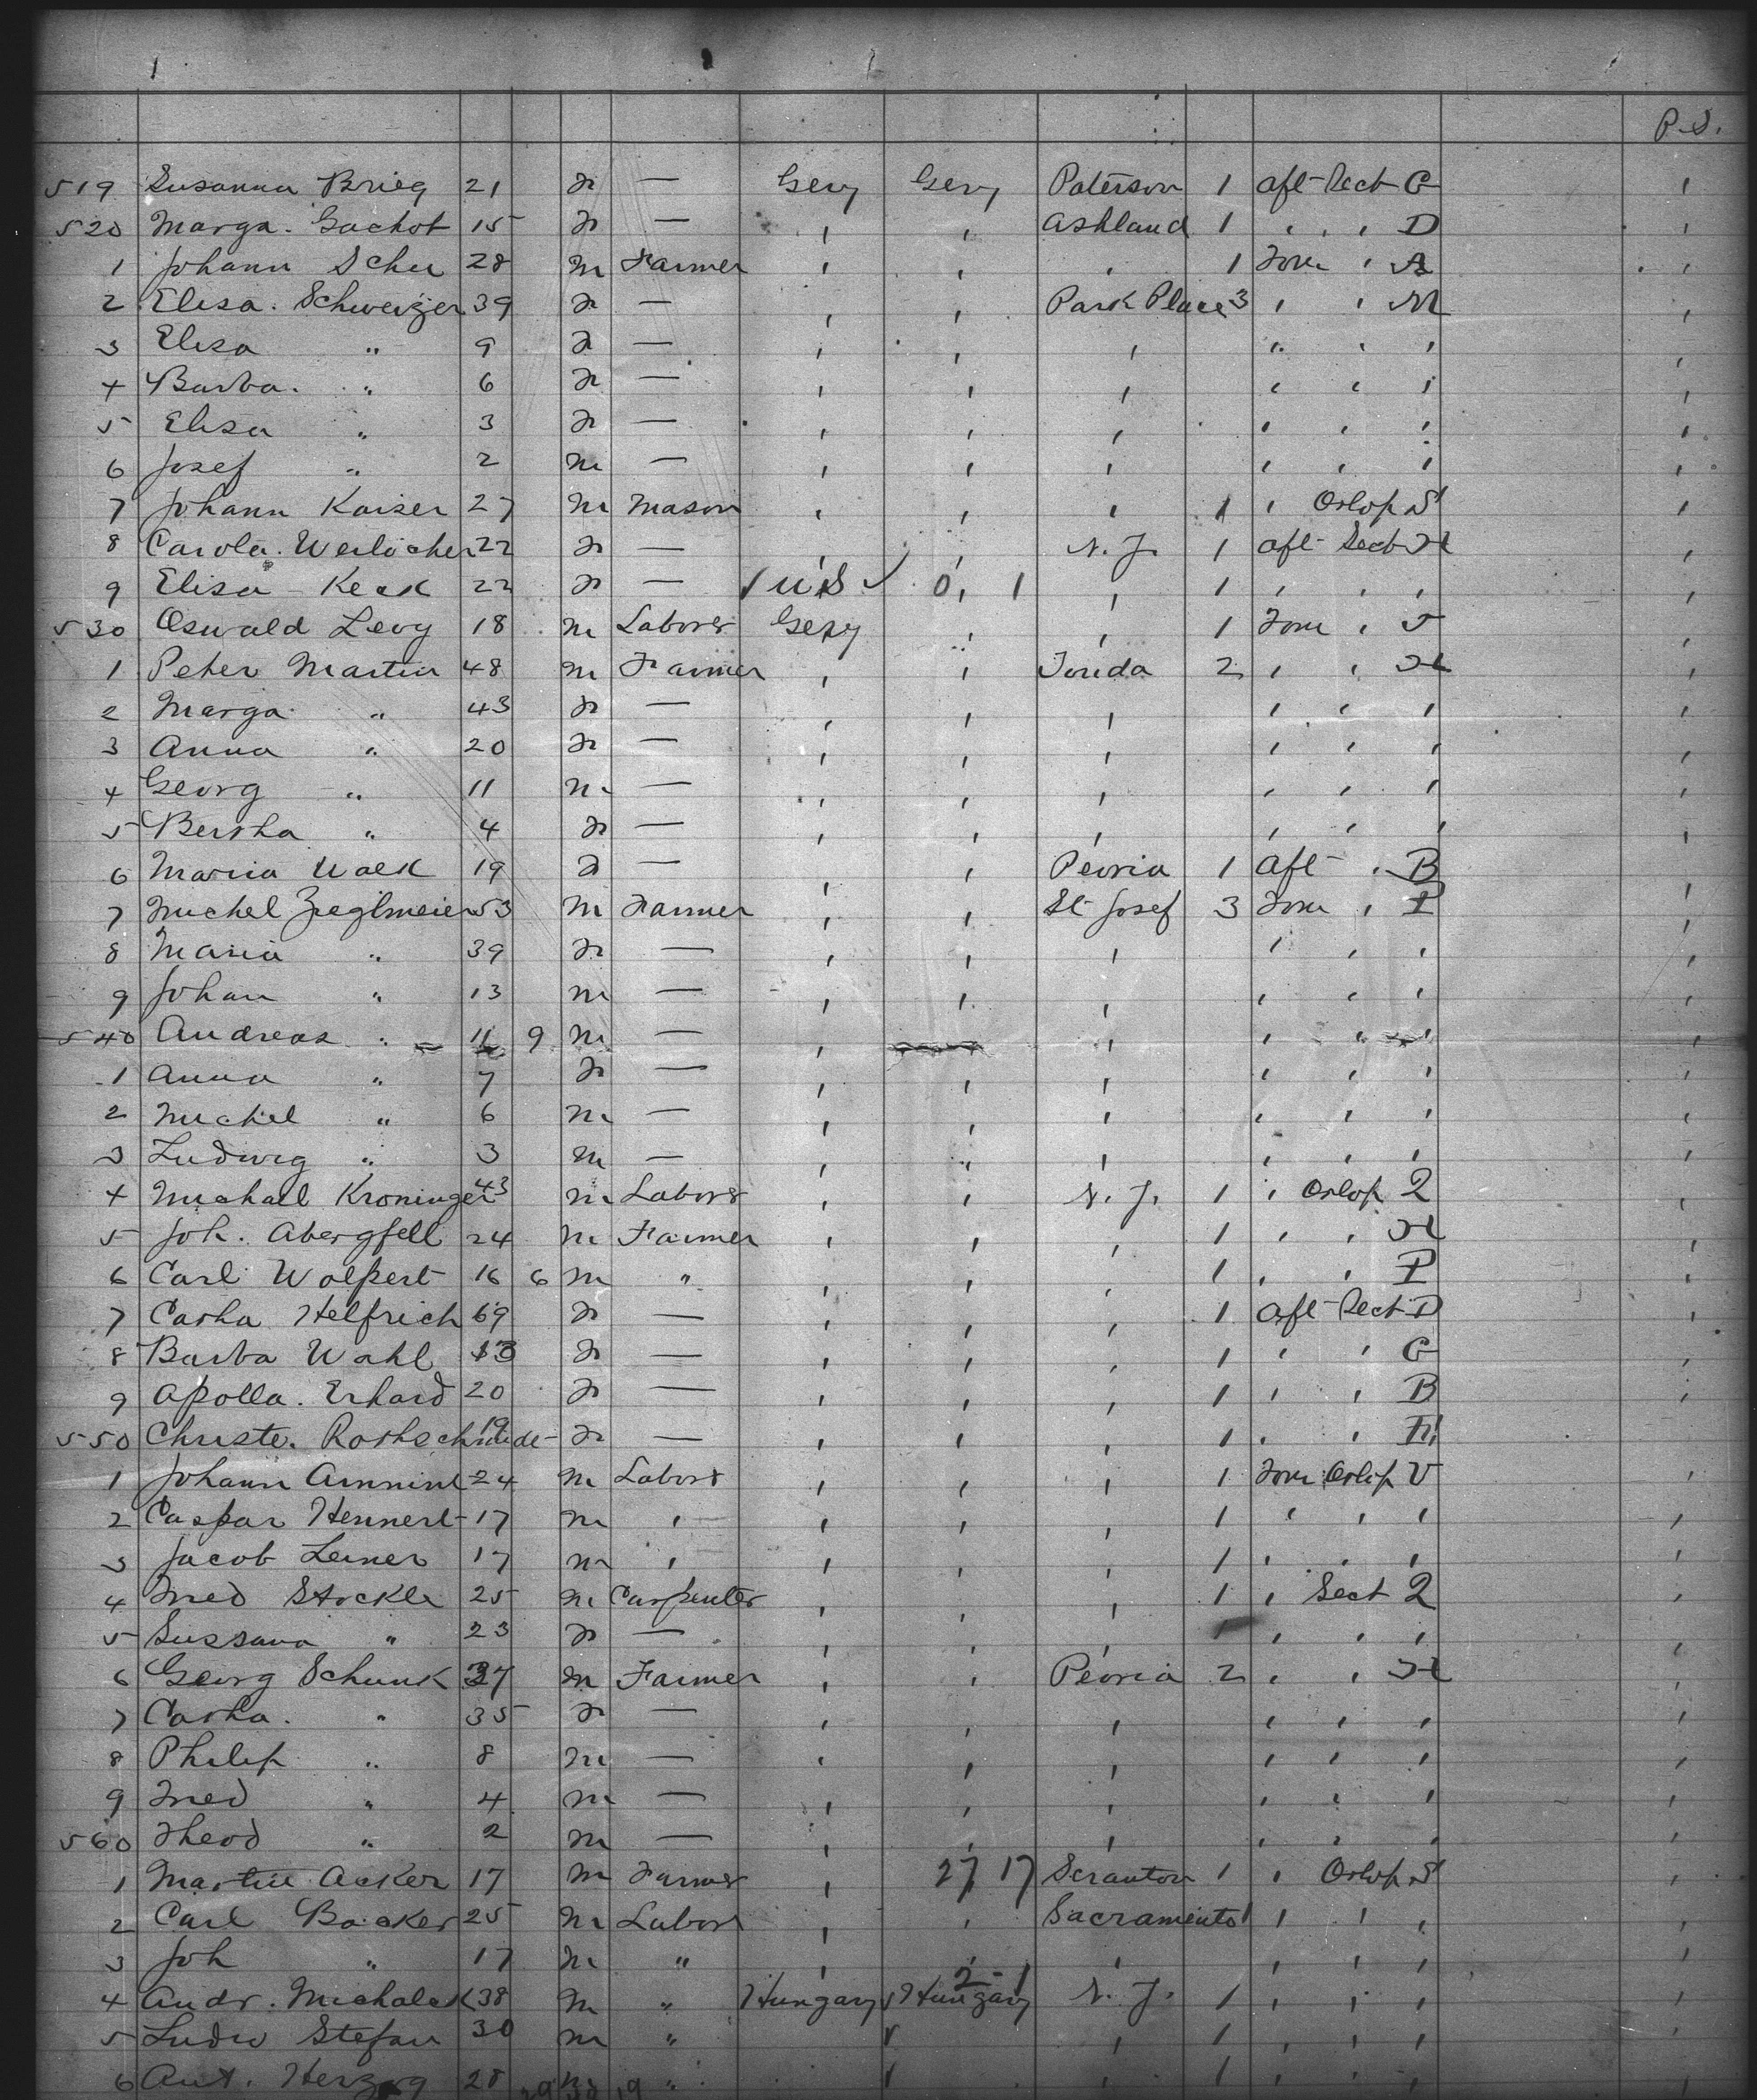 P.S.
519 Susanna Brieg 21 F — Gery Gery Paterson 1 aft Sect G ,
520 Marga. Gachot 15 F — , , Ashland 1 , , , D ,
1 Johann Schu 28 m Farmer , , , 1 Forw , A ,
2 Elisa. Schweizer 39 F — , , Park Place 3 , , M ,
3 Elisa " 9 F — , , , , , , ,
4 Barba. " 6 F — , , , , , , ,
5 Elisa " 3 F — , , , , , , ,
6 Josef " 2 m — , , , , , , ,
7 Johann Kaiser 27 m Mason , , , 1 , Orlop S ,
8 Carola. 22 F — , , N. J. 1 aft Sect H ,
9 Elisa Keck 22 F — 1 U.S ✓ 0, 1 , 1 , , , ,
530 Oswald Levy 18 m Labors Gery , , 1 Forw , J ,
1 Peter Martin 48 m Farmer , , 2 , , H ,
2 Marga " 43 F — , , , , , , ,
3 Anna " 20 F — , , , , , , ,
4 Georg " 11 m — , , , , , , ,
5 Bertha " 4 F — , , , , , , ,
6 Maria Walk 19 F — , , Peoria 1 Aft , B ,
7 Michel Zieglmeier 53 m Farmer , , St Josef 3 Forw , P ,
8 Maria " 39 F — , , , , , , ,
9 Johan " 13 m — , , , , , , ,
540 Andreas " 11 9 m — , , , , , ,
1 Anna " 7 F — , , , , , , ,
2 Michel " 6 m — , , , , , , ,
3 Ludwig " 3 m — , , , , , , ,
4 Michael Kroninger 43 m Labors , , N. J. 1 , Orlop Q ,
5 Joh. Abergfell 24 m Farmer , , , 1 , , H ,
6 Carl Wolpert 16 6 m " , , , 1 , , P ,
7 Catha Helfrich 69 F — , , , 1 Aft Sect D ,
8 Barba Wahl F — , , , 1 , , G ,
9 Apolla. Erhard 20 F — , , , 1 , , B ,
550 Christe. Rothschmidt 19 F — , , , 1 , ,
1 Johann 24 m Labors , , , 1 Forw Orlop V ,
2 Caspar Hennerl 17 m , , , , 1 , , , ,
3 Jacob Leiner 17 m , , , , 1 , , , ,
4 Fred Stockle 25 m Carpenter , , , 1 , Sect Q ,
5 Sussana " 23 F — , , , 1 , , , ,
6 Georg Schunk 37 m Farmer , , Peoria 2 , , H ,
7 Catha. " 35 F — , , , , , , ,
8 Philip " 8 m — , , , , , , ,
9 Fred " 4 m — , , , , , , ,
560 Theod " 2 m — , , , , , , ,
1 Martin Acker 17 m Farmer , 27 17 Scranton 1 , Orlop S ,
2 Carl Backer 25 m Labors , , Sacramento 1 , , , ,
3 Joh " 17 m " , , , , , , ,
4 Andr. Michalek 38 m " Hungary 2 - 1 Hungary N. J. 1 , , , ,
5 Ludw Stefan 30 m " , 1 , , , ,
6 Ant. Herzog 28 m " , 1 , , , ,